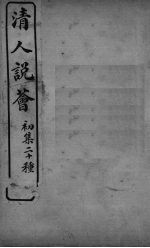 清人説薈
初集二十種